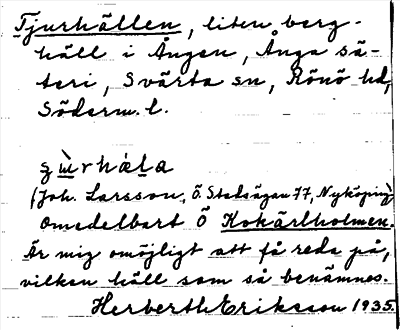 Tjurhällen, liten berg-
häll i Ången, Ånga sä-
teri, Svärta sn, Rönö hd,
Söderm. l.
ʒùrhála
(Joh. Larsson, Ö. Stadsägan 77, Nyköping)
Omedelbart Ö Kokärlholmen.
Är mig omöjligt att få reda på,
vilken häll som så benämnes.
Herberth Eriksson 1935.